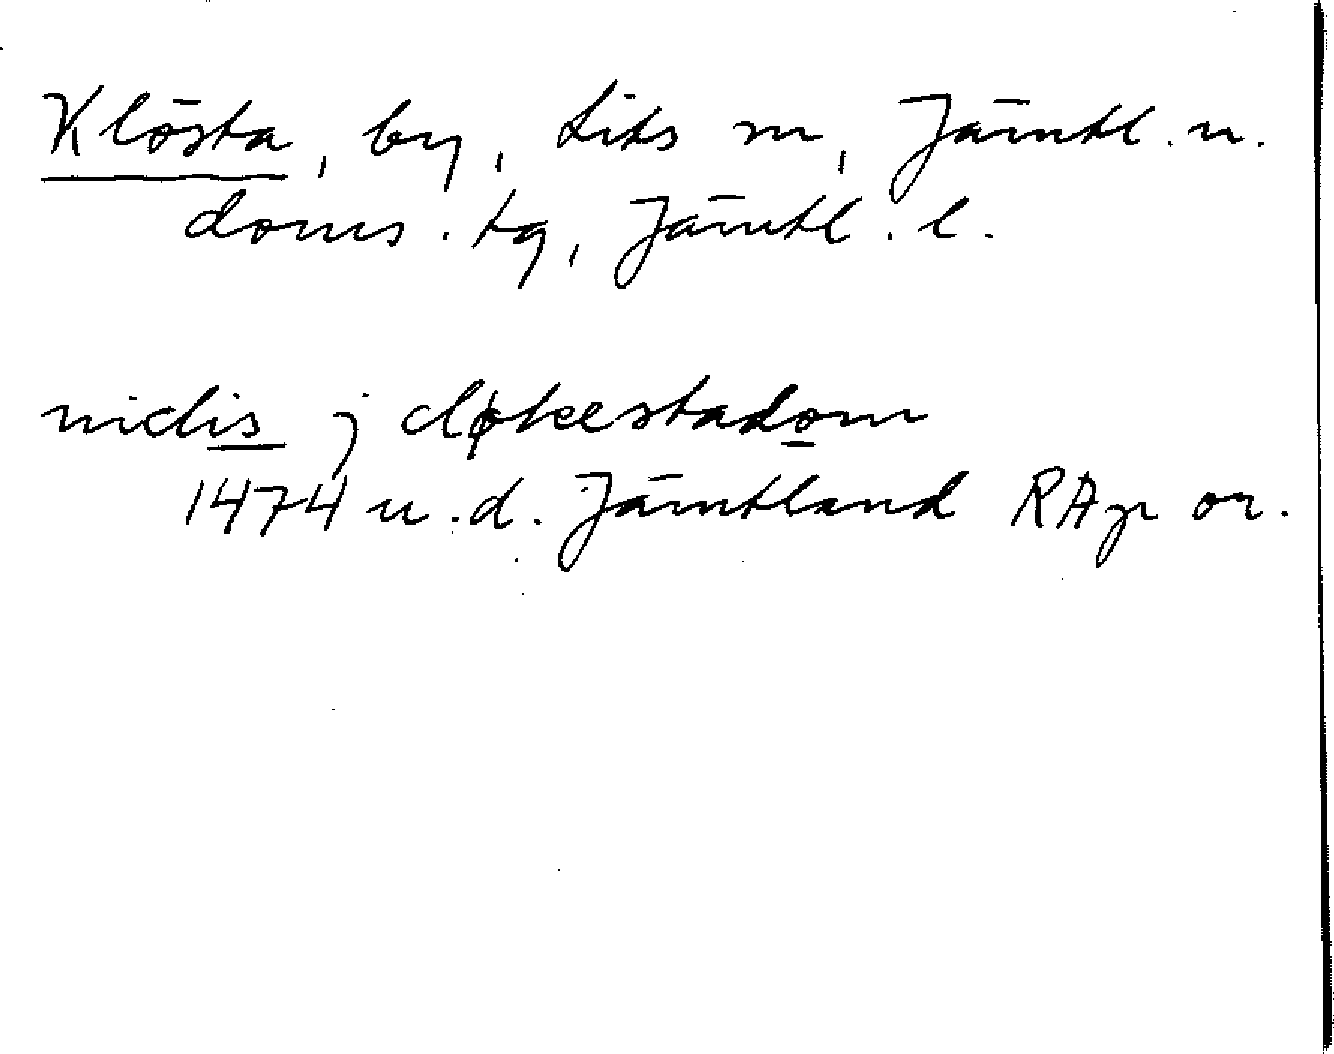 Klösta, by, Lits sn, Jämtl. n.
doms. tg, Jämtl. l.
niclis j cløkestadom
1474 u.d. Jämtland RAp or.